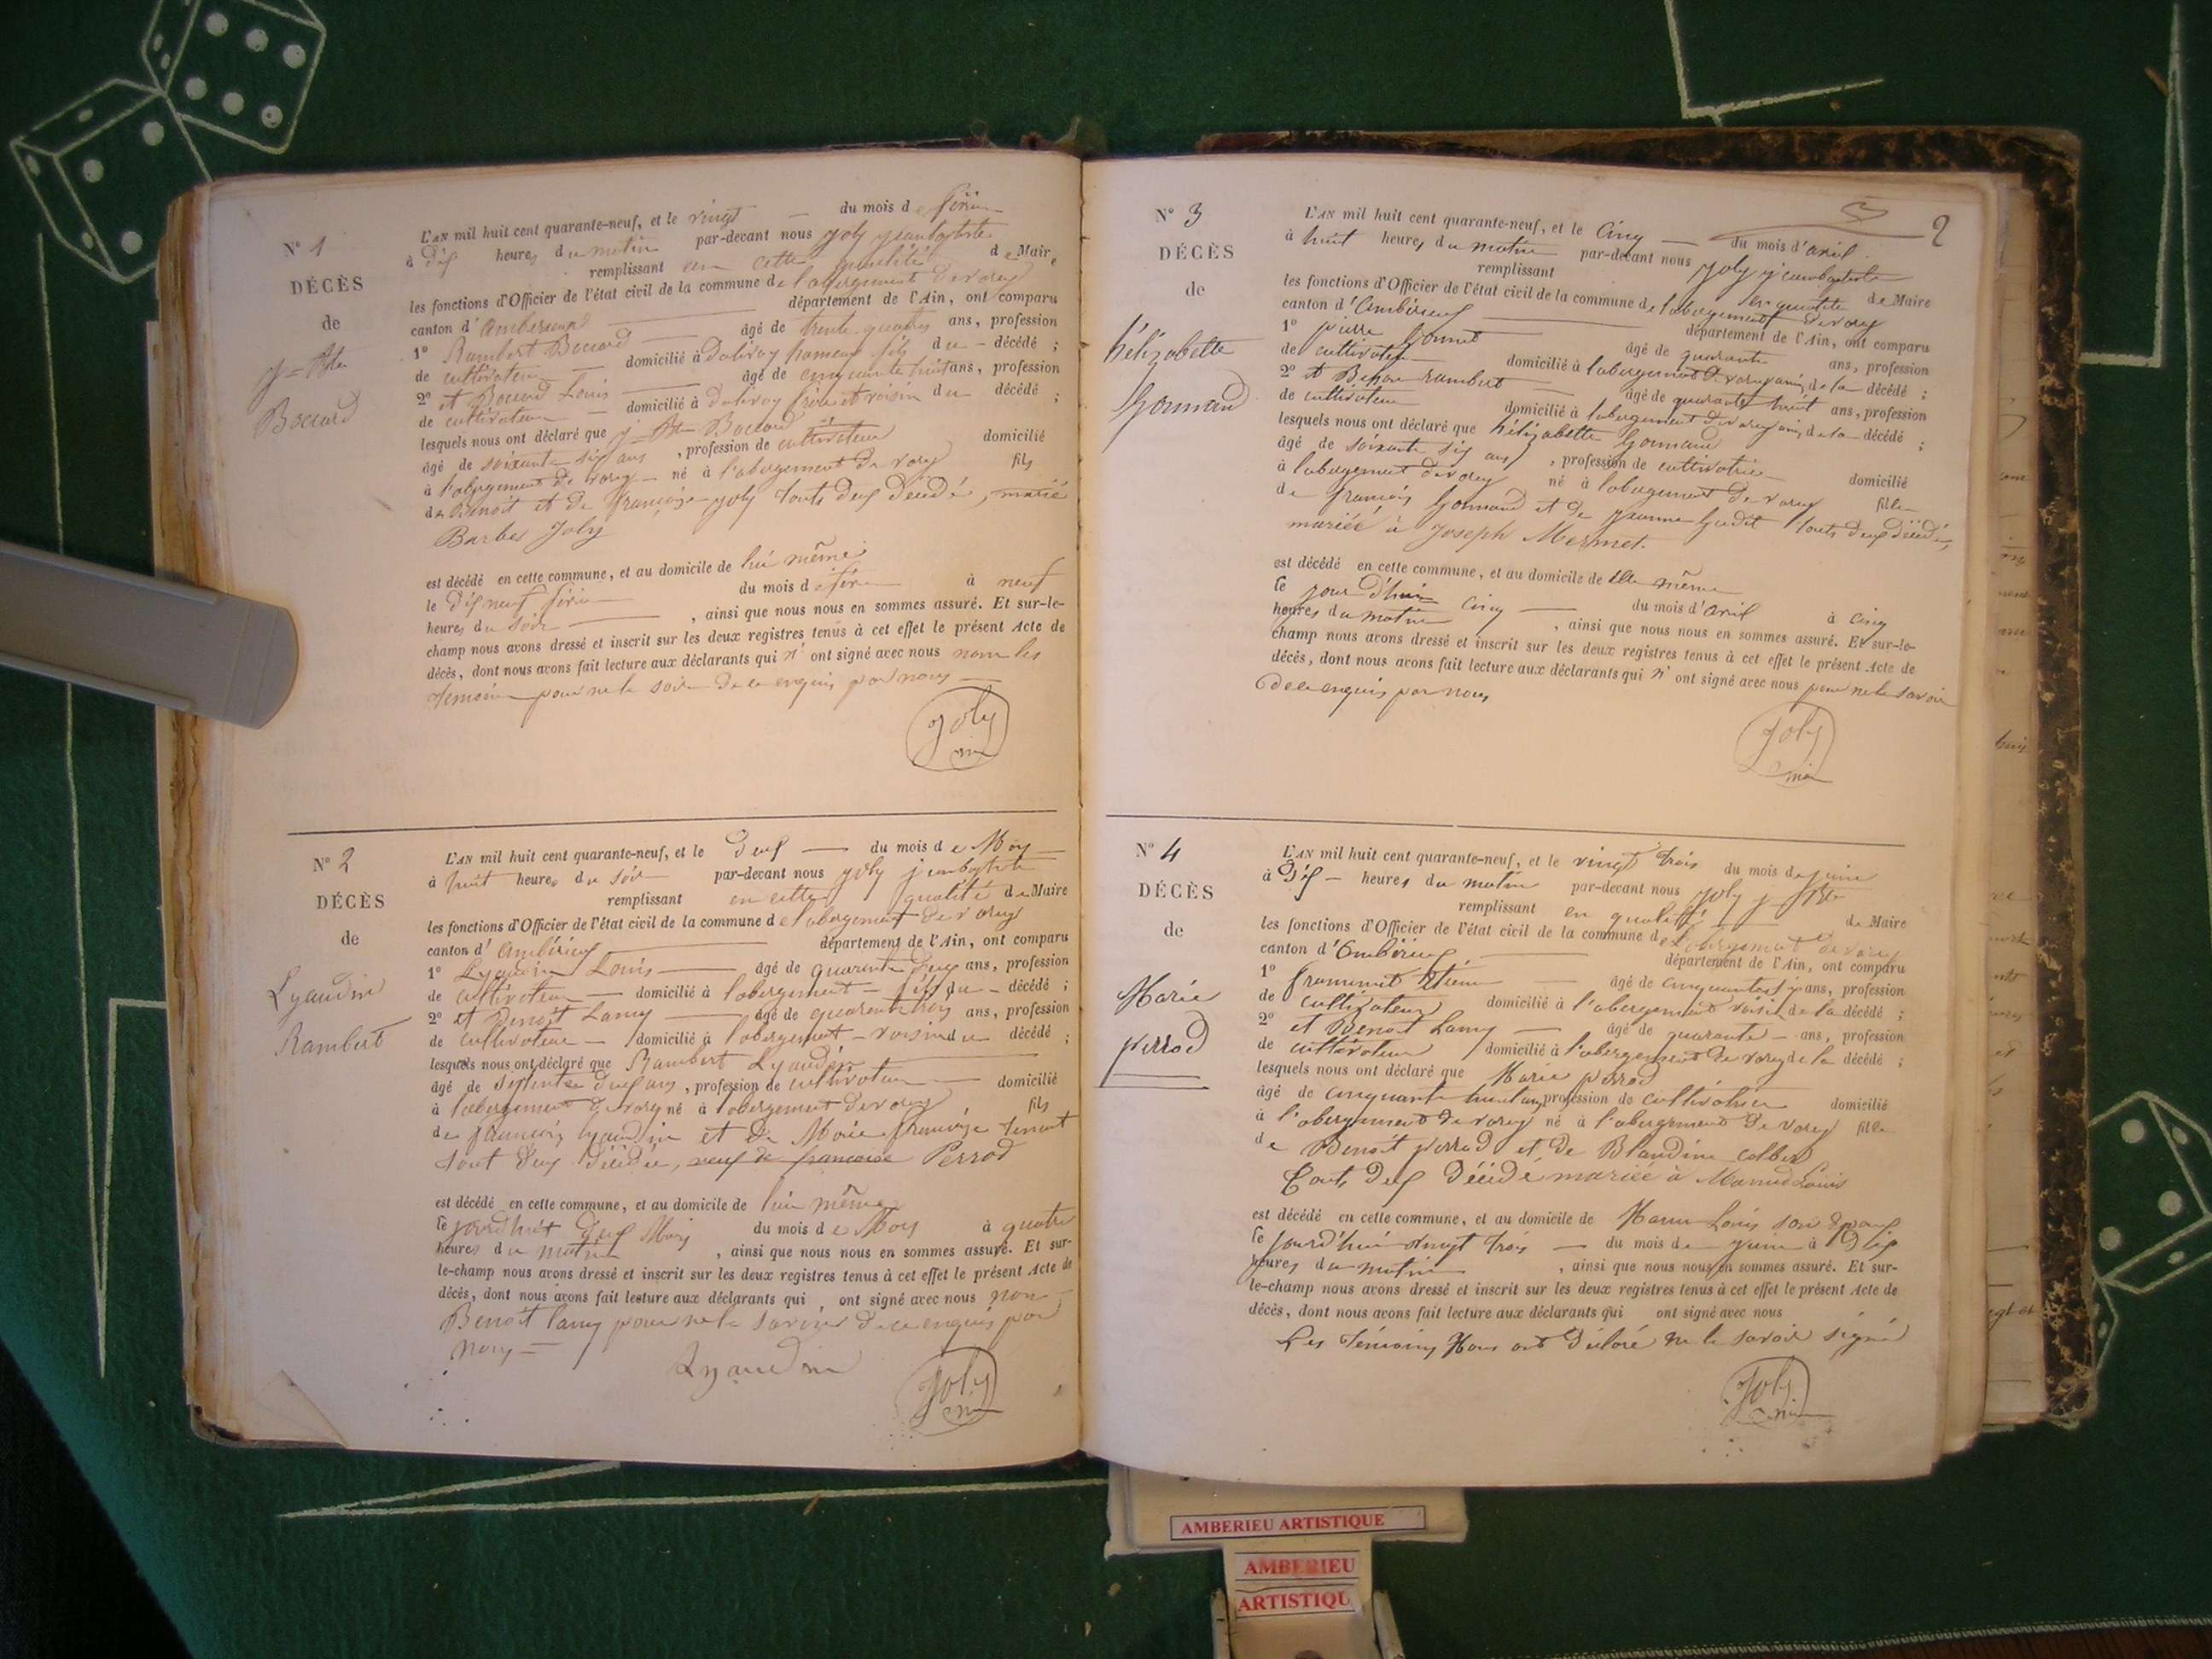 N° 1
DÉCÈS
de
j = Bte
Boccard
L'AN mil huit cent quarante-neuf, et le vingt — du mois de février
à dix heures du matin par-devant nous joly jeanbaptiste
remplissant en cette qualité de Maire
les fonctions d'Officier de l'état civil de la commune de l'abergement de varey
canton d'ambérieux département de l'Ain, ont comparu
1° Rambert Boccard âgé de trente quatre ans, profession
de cultivateur domicilié à hameau fils du décédé ;
2° et Boccard Louis âgé de cinquante huit ans, profession
de cultivateur domicilié à frère et voisin du décédé ;
lesquels nous ont déclaré que j = Bte Boccard
âgé de soixante six ans, profession de cultivateur domicilié
à l'abergement de varey né à l'abergement de varey fils
de Benoit et de françoise joly touts deux décédé, marié
Barbes Joly
est décédé en cette commune, et au domicile de lui même
le dix neuf février du mois de février à neuf
heures du soir, ainsi que nous nous en sommes assuré. Et sur-le-
champ nous avons dressé et inscrit sur les deux registres tenus à cet effet le présent Acte de
décès, dont nous avons fait lecture aux déclarants qui n' ont signé avec nous les
témoins pour ne le savoir de ce enquis par nous
Joly
N° 2
DÉCÈS
de
Lyaudin
Rambert
L'AN mil huit cent quarante-neuf, et le deux — du mois de
à huit heures du soir par-devant nous joly jeanbaptiste
remplissant en cette qualité de Maire
les fonctions d'Officier de l'état civil de la commune de l'abergement de varey
canton d'ambérieux département de l'Ain, ont comparu
1° Lyaudin Louis âgé de quarante deux ans, profession
de cultivateur — domicilié à l'abergement — fils du décédé ;
2° et Benoit Lamy âgé de quarante trois ans, profession
de cultivateur domicilié à l'abergement — voisin du décédé ;
lesquels nous ont déclaré que Rambert Lyaudin
âgé de septente deux ans, profession de cultivateur domicilié
à l'abergement de varey né à l'abergement de varey fils
de françois lyaudin et de Marie françoise
tout deux décédée, veuf de francoise Perrod
est décédé en cette commune, et au domicile de lui même
le jourd'huit deux du mois de à quatre
heures du matin, ainsi que nous nous en sommes assuré. Et sur-
le-champ nous avons dressé et inscrit sur les deux registres tenus à cet effet le présent Acte de
décès, dont nous avons fait lecture aux déclarants qui ont signé avec nous non
Benoit lamy pour ne le savoir de ce enquis par
nous —
Lyaudin
Joly
2
N° 3
DÉCÈS
de
hélizabette
Gonnand
L'AN mil huit cent quarante-neuf, et le cinq — du mois d'avril
à huit heures du matin par-devant nous Joly jeanbaptiste
remplissant en qualité de Maire
les fonctions d'Officier de l'état civil de la commune de l'abergement de varey
canton d'ambérieux département de l'Ain, ont comparu
1° pierre âgé de quarante ans, profession
de cultivateur domicilié à l'abergement de varey ami de la décédé ;
2° et rambert âgé de quarante huit ans, profession
de cultivateur domicilié à l'abergement de varey ami de la décédé ;
lesquels nous ont déclaré que hélizabette Gonnand
âgé de soixante six ans, profession de cultivatrice domicilié
à l'abergement de varey né à l'abergement de varey fille
de françois Gonnand et de jeanne touts deux décédés,
mariée à Joseph Mermet.
est décédé en cette commune, et au domicile de elle même
le jour d'hui cinq — du mois d'avril à cinq
heures du matin, ainsi que nous nous en sommes assuré. Et sur-le-
champ nous avons dressé et inscrit sur les deux registres tenus à cet effet le présent Acte de
décès, dont nous avons fait lecture aux déclarants qui n' ont signé avec nous pour ne le savoir
de ce enquis par nous
Joly
N° 4
DÉCÈS
de
Marie
perrod
L'AN mil huit cent quarante-neuf, et le vingt trois du mois de juin
à dix — heures du matin par-devant nous Joly j Bte
remplissant en qualité de Maire
les fonctions d'Officier de l'état civil de la commune de l'abergement de varey
canton d'ambérieux département de l'Ain, ont comparu
1° âgé de ans, profession
de cultivateur domicilié à l'abergement voisin de la décédé ;
2° et Benoit Lamy — âgé de quarante — ans, profession
de cultivateur domicilié à l'abergement de varey de la décédé ;
lesquels nous ont déclaré que Marie perrod
âgé de cinquante huit ans, profession de cultivatrice domicilié
à l'abergement de varey né à l'abergement de varey fille
de Benoit perrod et de Blandine
touts deux décédé mariée à Louis
est décédé en cette commune, et au domicile de Louis son époux
le jourd'hui vingt trois — du mois de juin à
heures du matin, ainsi que nous nous en sommes assuré. Et sur-
le-champ nous avons dressé et inscrit sur les deux registres tenus à cet effet le présent Acte de
décès, dont nous avons fait lecture aux déclarants qui ont signé avec nous
Les témoins Nous ont déclaré ne le savoir signé
Joly
AMBERIEU ARTISTIQUE
AMBERIEU
ARTISTIQU